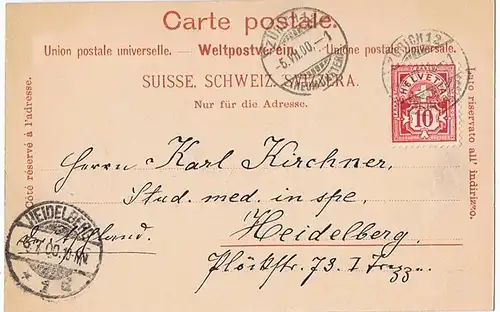 Carte postale.
Union postale universelle. — Weltpostverein. — Unione postale universale.
SUISSE. SCHWEIZ. SVIZZERA.
Nur für die Adresse.
Côté réservé à l'adresse.
Lato riservato all' indirizzo.
ZÜRICH
-5.VII.00.-1
ZÜRICH 12
HELVETIA
10
Herrn Karl Kirchner,
Stud. med. in spe,
Heidelberg.
Plöckstr. 73. I
HEIDELBERG
* 1 c